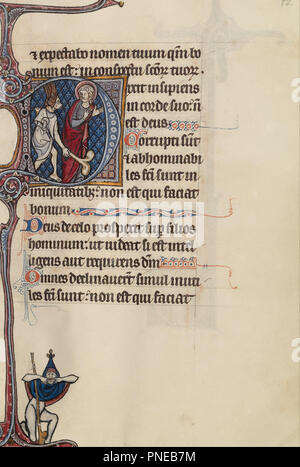 ⁊ expectabo nomen tuum qm̄ bo
num est: in conspectu sc̄oꝝ tuoꝝ.
Dixit insipiens
in corde suo: n̄
est deus
Corrupti sūt
⁊ abhominabi
les fc̄i sunt in
iniquitatibꝫ: non est qui faciat
bonum.
Deus de celo prospexit sup̄ filios
hominum: ut uideat si est intel
ligens aut requirens dm̄
Omnes declinauerunt simul inuti
les fc̄i sunt: non est qui faciat
alamy
Image ID: PNEB7M
www.alamy.com